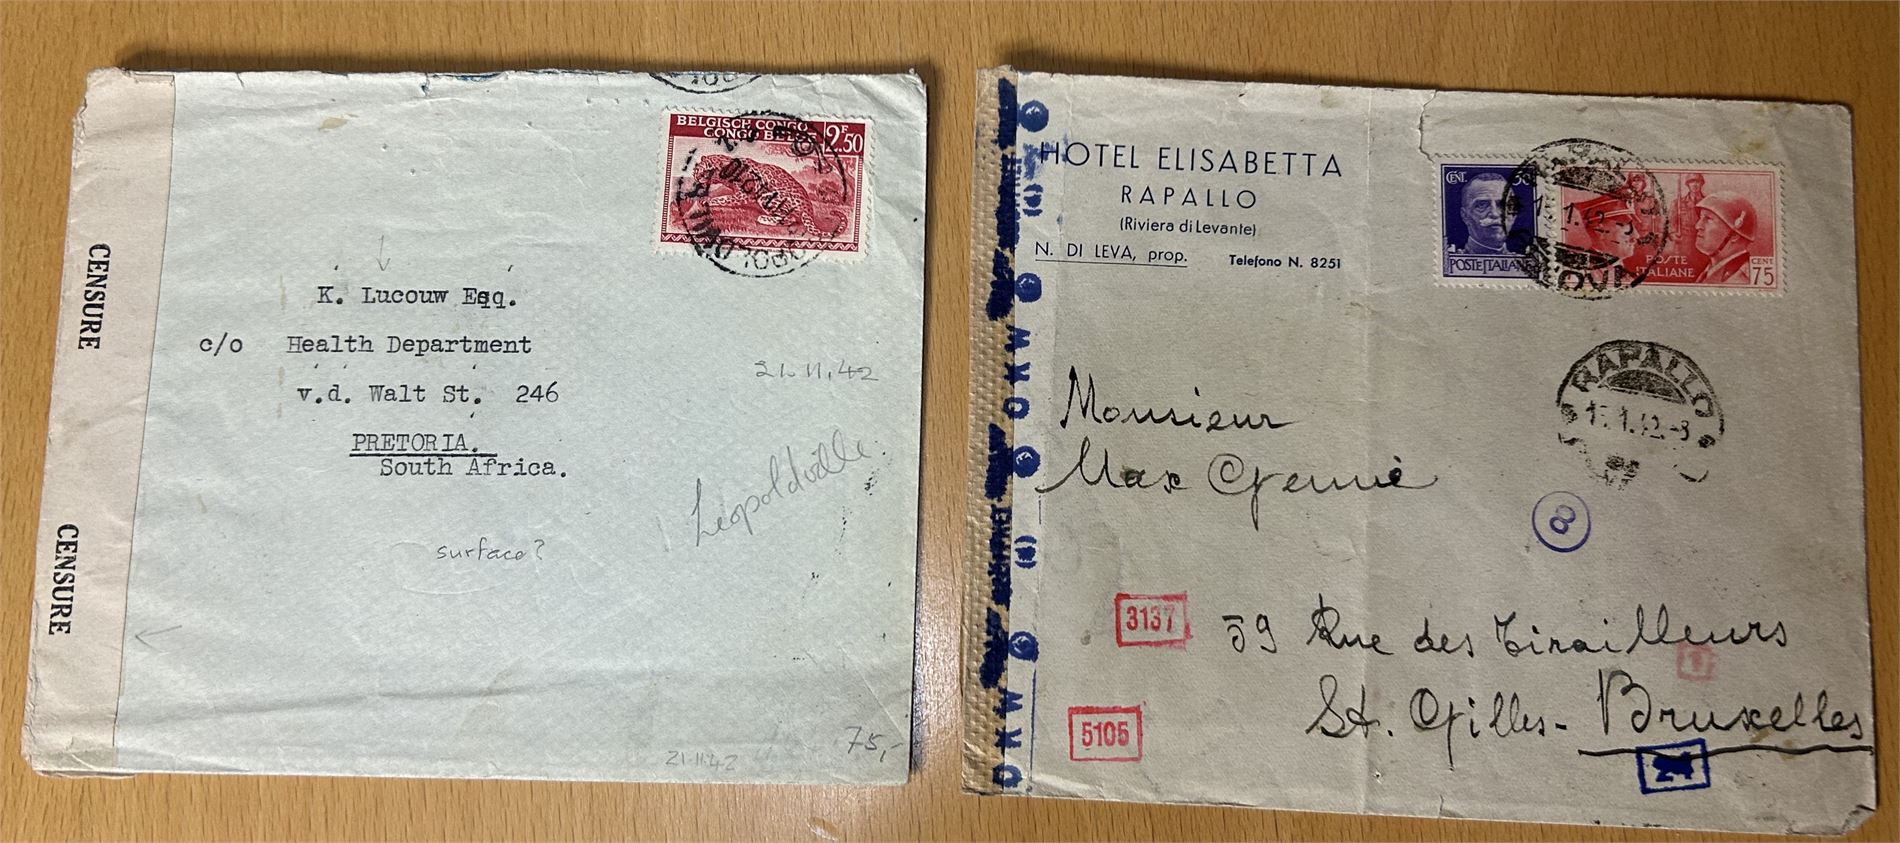 CENSURE
CENSURE
BELGISCH CONGO
CONGO BELGE
2F.50
K. Lucouw Esq.
c/o Health Department
v.d. Walt St. 246
PRETORIA.
South Africa.
21.11.42
Leopoldville
surface?
75,-
21.11.42
HOTEL ELISABETTA
RAPALLO
(Riviera di Levante)
N. DI LEVA, prop. Telefono N. 8251
CENT.
POSTE ITALIANE
15.1.42
POSTE
ITALIANE
CENT
75
RAPALLO
1.42.-8
OKW
OKW
Monsieur
Max
8
3137
59 Rue des Tirailleurs
St. Gilles - Bruxelles
5105